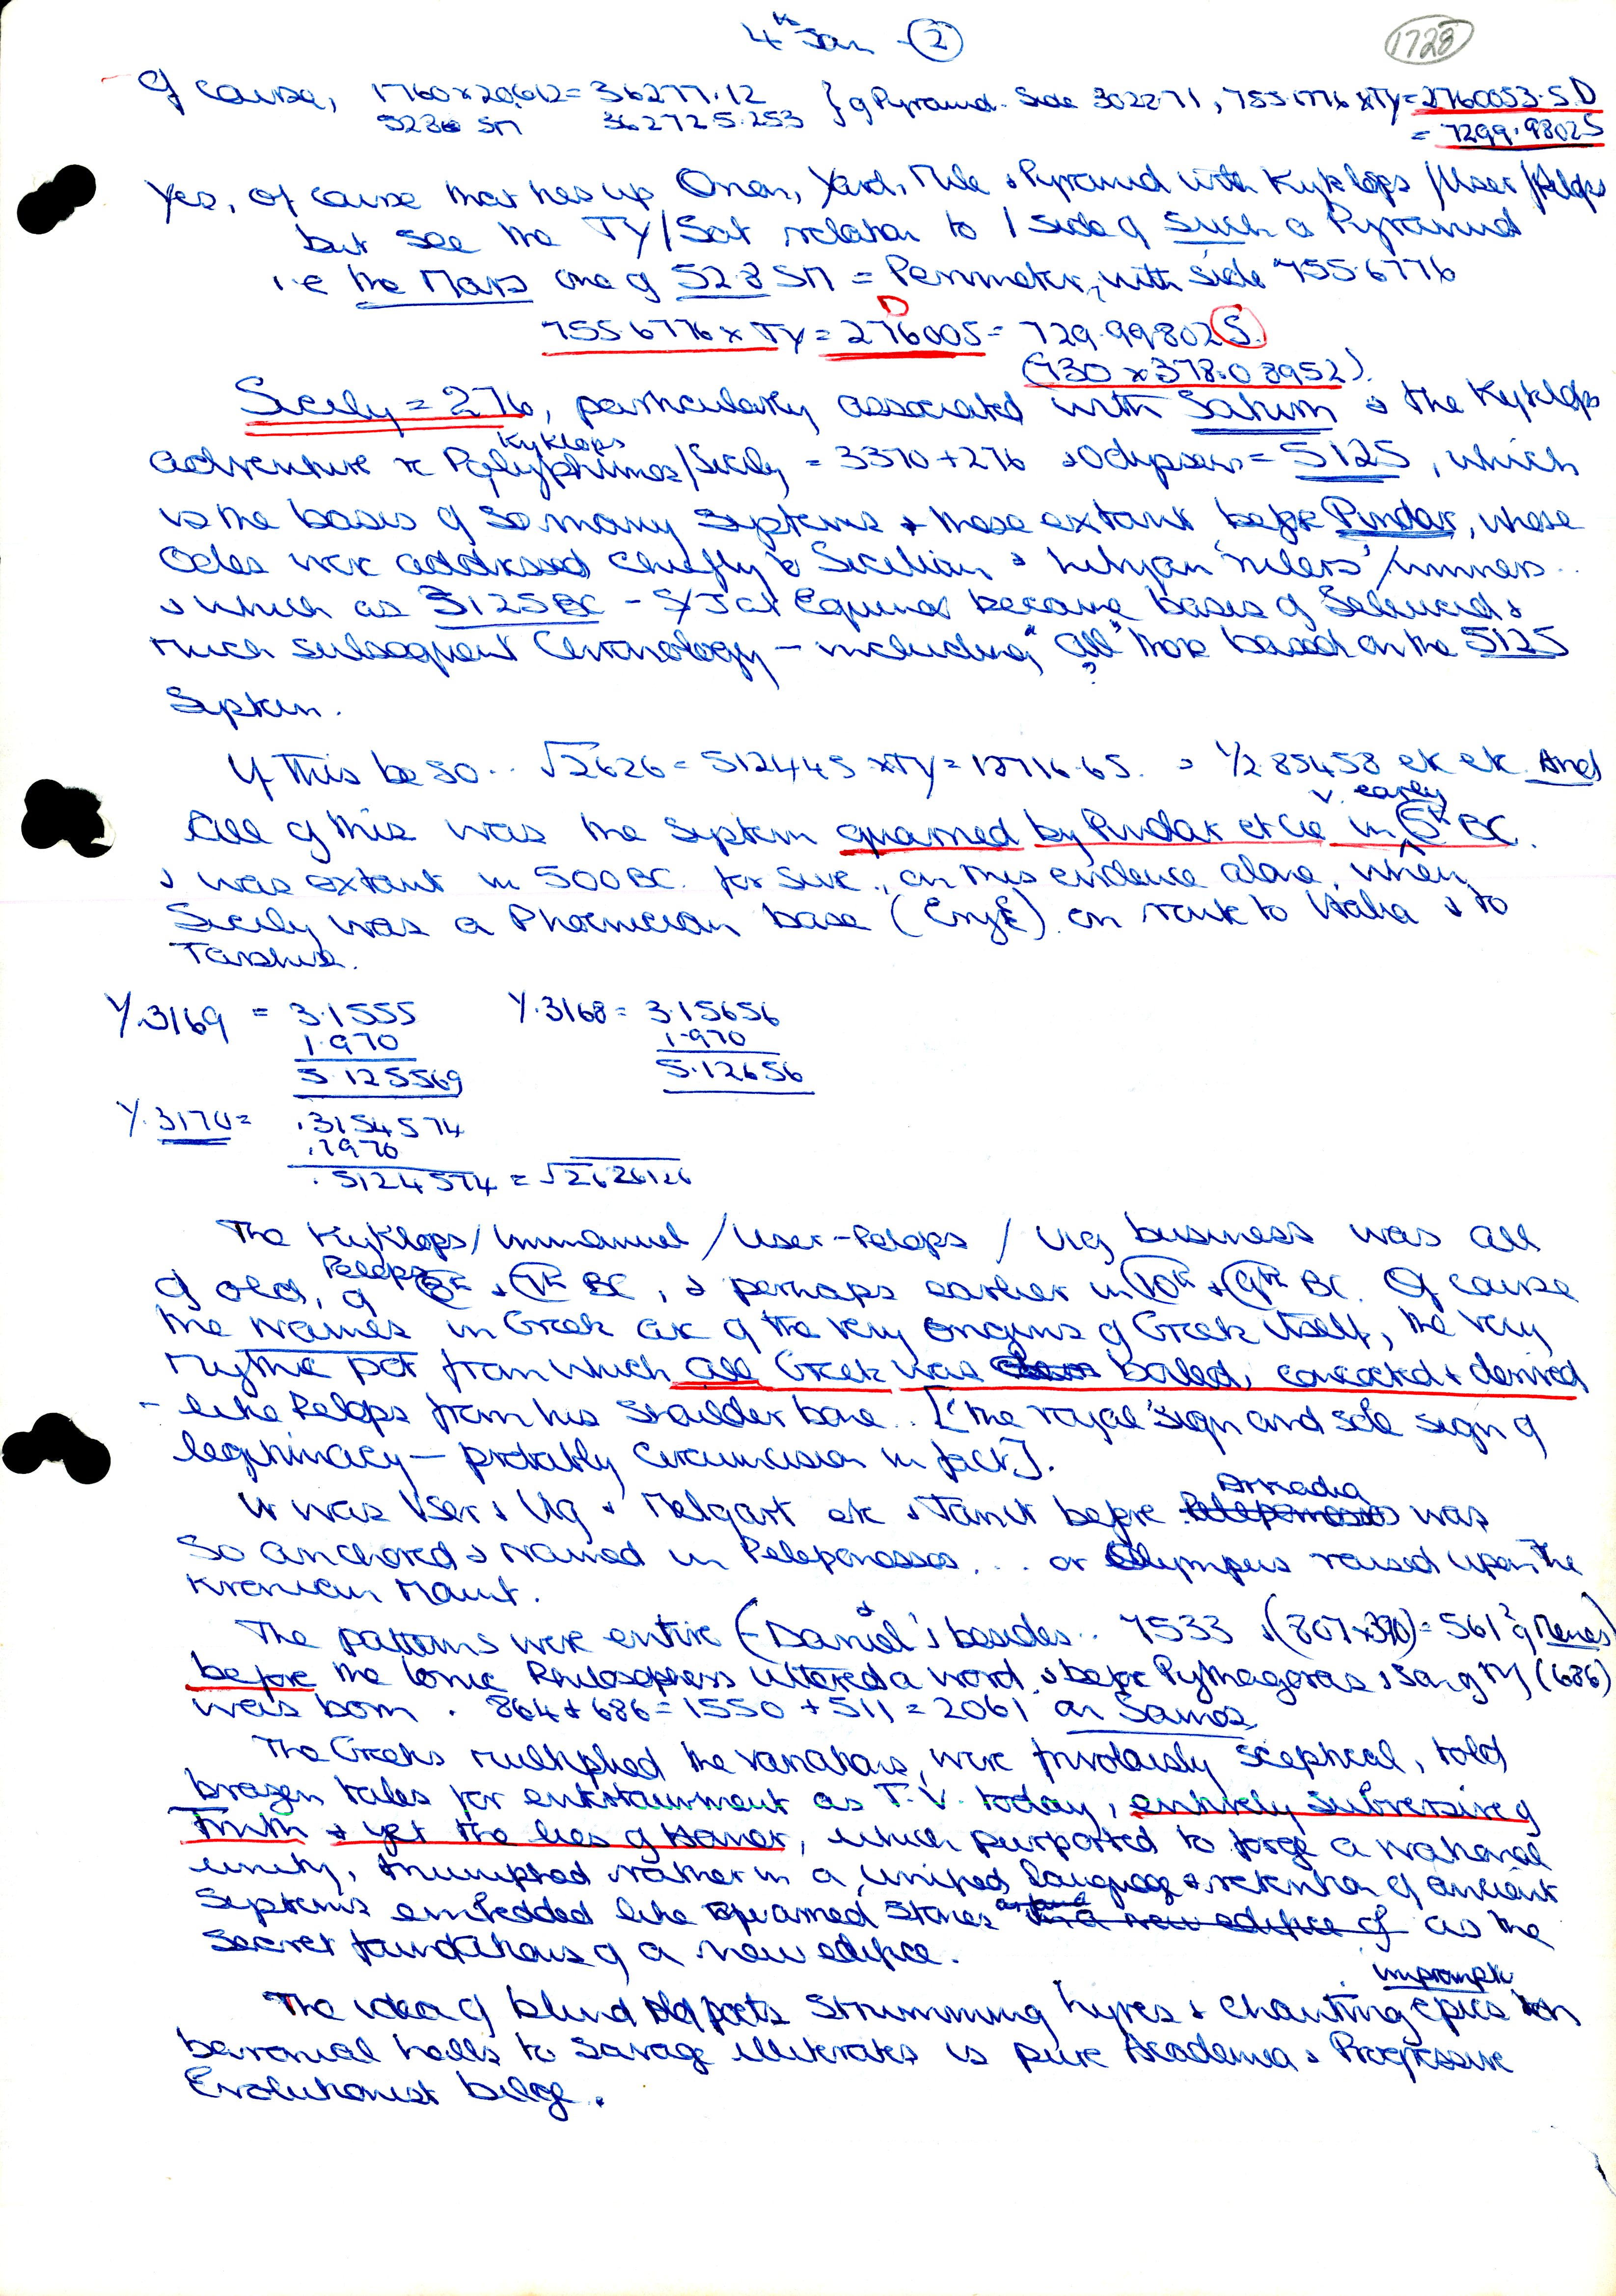 4th Jan - (2)
1728
Of cause, 1760 x 20.612 = 36277.12 } of Pyramid. Side 3022.71, 755.6776 x TY = 2760053.5.D
5236 SM 362725.253 = 7299.98025
Yes, of cause that ties up Onen, Yard, Mile & Pyramid with Kyklops / User / Pelops
but see the TY/Sat relation to 1 side of such a Pyramid
i.e the Mars one of 528 SM = Perimeter, with side 755.6776
755.6776 x TY = 276005 D = 729.99802 S.
(730 x 378.08952).
Sicily = 276, particularly associated with Saturn & the Kyklops
adventure re Kyklops Polyphimos/Sicily = 3370 + 276 & Odysseus = 5125, which
is the basis of so many systems & those extant before Pindar, whose
Odes were addressed chiefly to Sicilian & Libyan "rulers"/winners..
& which as 3125 BC - S/J at Equinox became basis of Seleucid &
much subsequent Chronology - including "all" those based on the 5125
?
System.
If this be so.. √2626 = 512445 x TY = 18716.65. & 1/2 85458 etc etc. And
All of this was the system quarried by Pindar et Cie in v. early 5th BC.
& was extant in 500 BC. for sure., on this evidence alone, when
Sicily was a Phoenician base (Eryx). en route to Italia & to
Tarshish.
1/.3169 = 3.1555 1/.3168 = 3.15656
1.970 1.970
5.125569 5.12656
1/.3170 = .3154574
.1970
.5124574 = √2626126
The Kyklops / Immanuel / User-Pelops / Ug business was all
of old, of Pelops 8th & 7th BC, & perhaps earlier in 10th & 9th BC. Of cause
the names in Greek are of the very origins of Greek itself, the very
mythic pot from which all Greek was boiled, concocted & derived
- like Pelops from his shoulder bone.. [the royal sign and sole sign of
legitimacy - probably circumcision in fact].
It was User & Ug & Melqart etc & Tanit before Peleponessos Arkadia was
so anchored & named in Peleponessos... or Olympus raised upon the
Kronian Mount.
The patterns were entire (- Daniel's besides.. 7533 & (807x390) = 561² of Menes)
before the Ionic Philosophers uttered a word, & before Pythagoras, son of M, (686)
was born. 864 + 686 = 1550 + 511 = 2061 on Samos
The Greeks multiplied the variations, were frivolously sceptical, told
brazen tales for entertainment as T.V. today, entirely subversive of
Truth & yet the lies of Homer, which purported to forge a national
unity, triumphed rather in a unified language & retention of ancient
Systems embedded like quarried stones in a new edifice of as the
secret foundations of a new edifice.
The idea of blind old poets strumming lyres & chanting impromptu epics in
baronial halls to savage illiterates is pure Academia & Progressive
Evolutionist bilge.